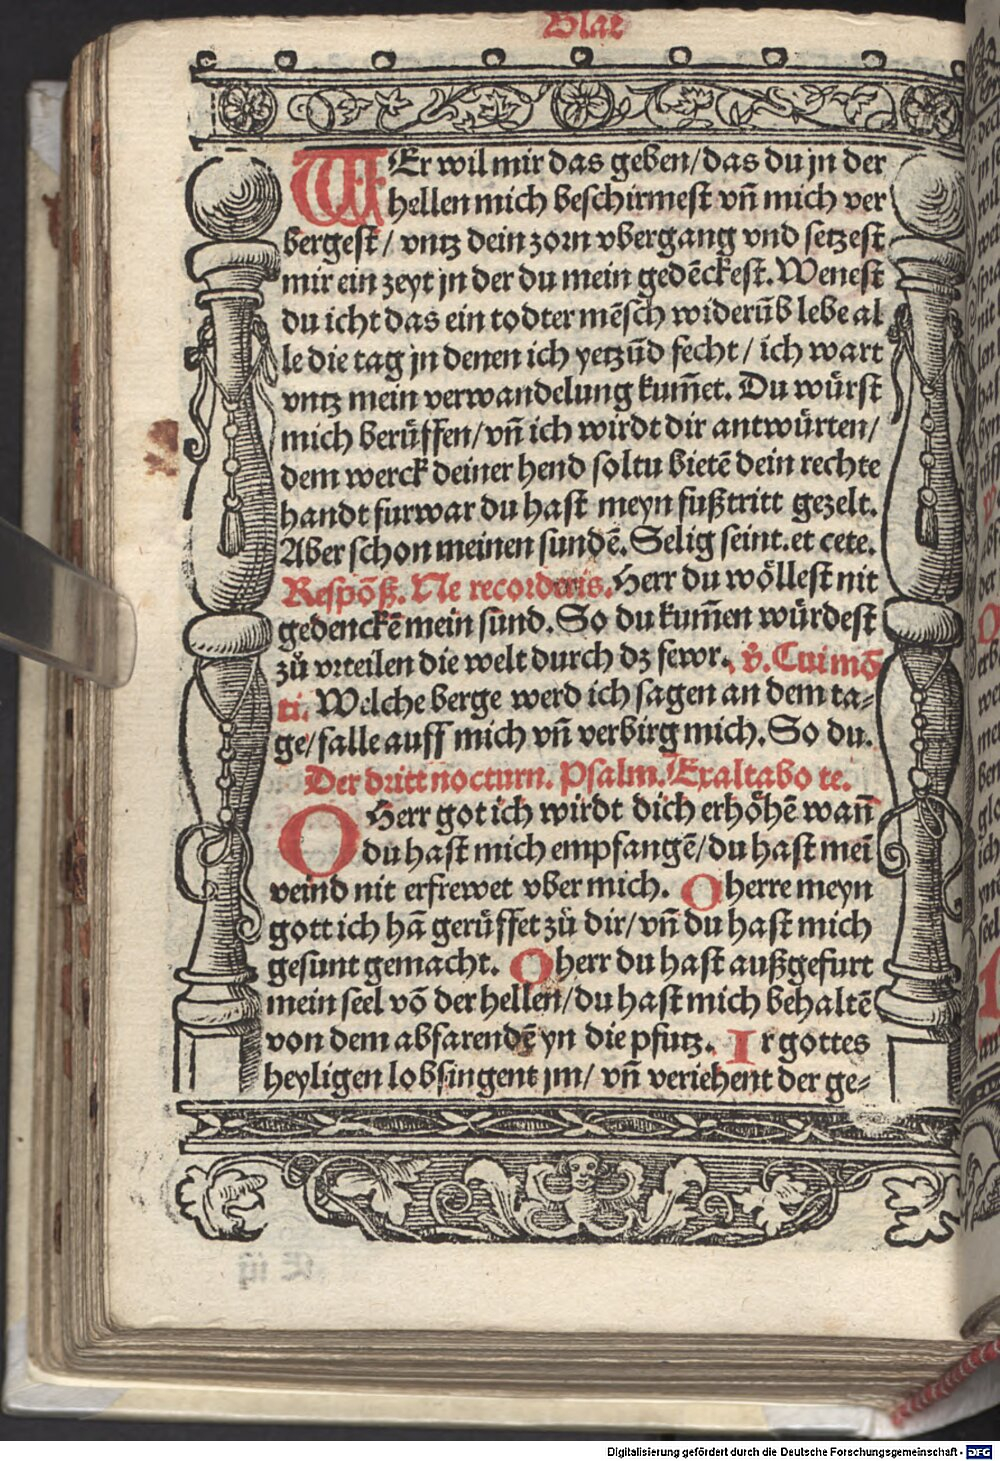 Blat
WEr wil mir das geben/das du jn der
hellen mich beschirmest vn̄ mich ver
bergest/ vntz dein zorn vbergang vnd setzest
mir ein zeyt jn der du mein gedēckest. Wenest
du icht das ein todter mēsch widerūb lebe al
le die tag jn denen ich yetzūd fecht/ ich wart
vntz mein verwandelung kum̄et. Du würst
mich berüffen/vn̄ ich wirdt dir antwürten/
dem werck deiner hend soltu bietē dein rechte
handt furwar du hast meyn fußtritt gezelt.
Aber schon meinen sundē. Selig seint. et cete.
Respōß. Ne recorderis. Herr du wöllest nit
gedenckē mein sünd. So du kum̄en würdest
zů vrteilen die welt durch dz fewr. v̄. Cui mō
ti. Welche berge werd ich sagen an dem ta⸗
ge/falle auff mich vn̄ verbirg mich. So du.
Der dritt nocturn. Psalm. Exaltabo te.
O Herr got ich wirdt dich erhöhē wan̄
du hast mich empfangē/du hast meī
veind nit erfrewet vber mich. O herre meyn
gott ich hā gerüffet zů dir/vn̄ du hast mich
gesunt gemacht. O herr du hast außgefurt
mein seel vō der hellen/du hast mich behaltē
von dem absarendē yn die pfutz. Ir gottes
heyligen lobsingent jm/ vn̄ veriehent der ge⸗
Digitalisierung gefördert durch die Deutsche Forschungsgemeinschaft - DFG